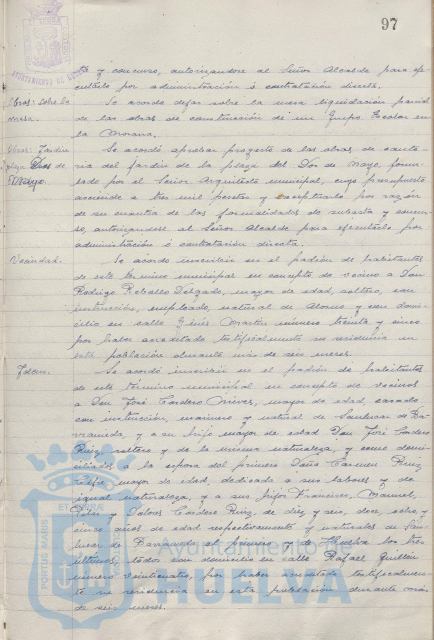 97
AYUNTAMIENTO DE HUELVA
y concurso, autorizandose al Señor Alcalde para eje-
cutarlo por administración ó contratación directa.
Obras: sobre la
mesa.
Se acordó dejar sobre la mesa liquidación parcial
de las obras de construcción de un Grupo Escolar en
la Morana.
Obras: Jardin
plaza Dos de
Mayo.
Se acordó aprobar proyecto de las obras de
del jardin de la plaza del Dos de Mayo, formu-
lado por el Señor Arquitecto municipal, cuyo presupuesto
asciende a tres mil pesetas y exceptuarlo por razón
de su cuantia de las formalidades de subasta y concur-
so, autorizandose al Señor Alcalde para ejecutarlo por
administración ó contratación directa.
Vecindad.
Se acordó inscribir en el padrón de habitantes
de este término municipal en concepto de vecino a Don
Rodrigo Rebollo Delgado, mayor de edad, soltero, con
instrucción, empleado, natural de Alosno y con domi-
cilio en calle Ginés Martín número treinta y cinco
por haber acreditado testificalmente su residencia en
esta población durante más de seis meses.
Idem.
Se acordó inscribir en el padrón de habitantes
de este término municipal en concepto de vecinos
a Don José Cordero mayor de edad, casado
con instrucción, marinero y natural de Sanlucar de Ba-
rrameda, y a su hijo mayor de edad Don José Cordero
Ruiz, soltero y de la misma naturaleza, y como domi-
ciliados a la esposa del primero Doña Carmen Ruiz
mayor de edad, dedicada a sus labores y de
igual naturaleza, y a sus hijos Francisco, Manuel,
y Dolores Cordero Ruiz, de diez y seis, doce, ocho y
cinco años de edad respectivamente y naturales de San-
lucar de Barrameda el primero y de Huelva los tres
ultimos, todos con domicilio en calle Rafael Guillén
número veinticuatro, por haber acreditado testificalmen-
te su residencia en esta población durante más
de seis meses.
PORTUS MARIS
ET TERRAE
Ayuntamiento de
HUELVA